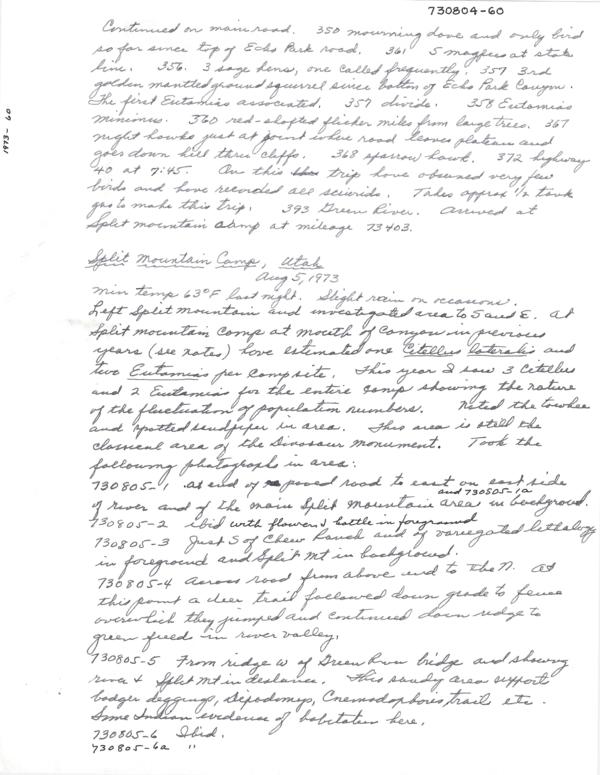 730804-60
1973-60
Continued on main road. 350 mourning dove and only bird
so far since top of Echo Park road. 361 5 magpies at state
line. 356. 3 sage hens, one called frequently. 357 3rd
golden mantled ground squirrel since bottom of Echo Park Canyon.
The first Eutamias associated. 357 divide. 358 Eutamias
minimus. 360 red-shafted flicker miles from large trees. 367
night hawks just at point where road leaves plateau and
goes down hill thru cliffs. 368 sparrow hawk. 372 highway
40 at 7:45. On this trip have observed very few
birds and have recorded all sciurids. Takes approx 1/2 tank
gas to make this trip. 393 Green River. Arrived at
Split mountain camp at mileage 73403.
Split Mountain Camp, Utah
Aug 5, 1973
Min temp 63°F last night. Slight rain on occasions.
Left Split Mountain and investigated area to S and E. At
Split mountain Camp at mouth of Canyon in previous
years (see notes) have estimated one Citellus lateralis and
two Eutamias per campsite. This year I saw 3 Citellus
and 2 Eutamias for the entire camp showing the nature
of the fluctuation of population numbers. Noted the towhee
and spotted sandpiper in area. This area is still the
classical area of the Dinosaur Monument. Took the
following photographs in area:
730805-1 at end of paved road to east on east side
of river and of the main Split Mountain area in background.
and 730805-1a
730805-2 ibid with flowers & bottle in foreground
730805-3 Just S of Chew Ranch and of variegated lithology
in foreground and Split Mt in background.
730805-4 across road from above and to the N. At
this point a deer trail followed down grade to fence
over which they jumped and continued down ridge to
green field in river valley.
730805-5 From ridge W of Green River bridge and showing
river & Split Mt in distance. This sandy area support
badger diggings, Dipodomys, Cnemodophorus, trail etc.
Some Indian evidence of habitation here.
730805-6 Ibid.
730805-6a "